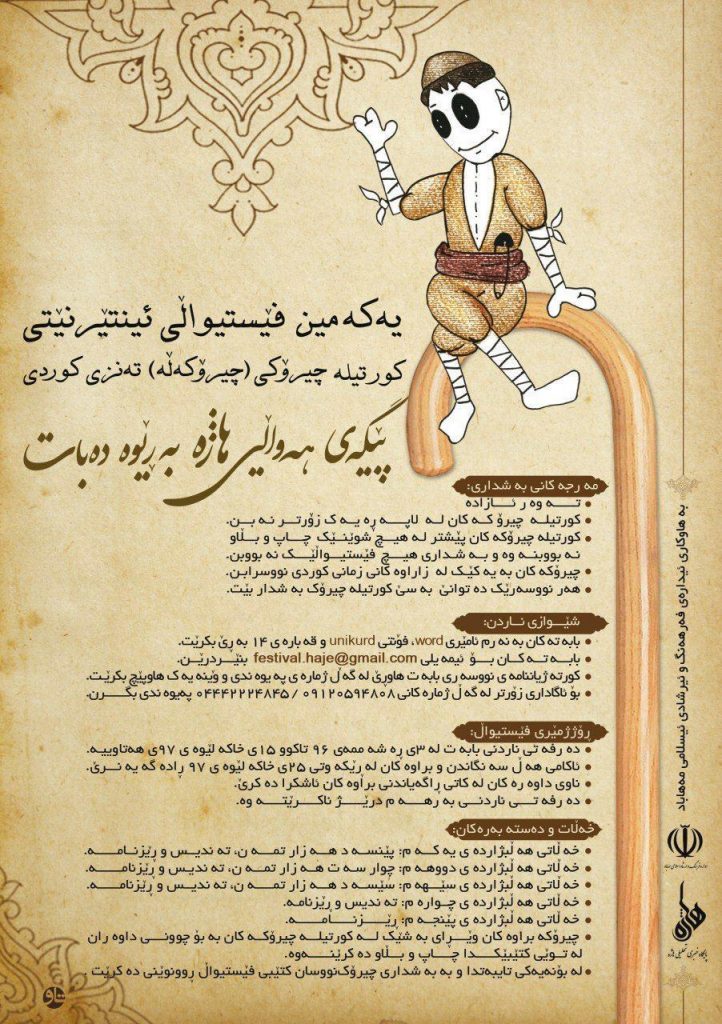 یەکەمین فێستیواڵی ئینتێرنێتی
کورتیلە چیرۆکی (چیرۆکەڵە) تەنزی کوردی
پێگەی هەواڵیی هاژە بەڕێوە دەبات
مە رجە کانی بە شداری:
تــە وە ر ئــازادە
کورتیلە چیرۆ کە کان لە لاپــە ڕە یە ک زۆرتــر نە بـن.
کورتیلە چیرۆکە کان پێشتر لە هیـچ شوێنێـک چـاپ و بـڵاو
نە بووبنـە وە و بە شداری هیـچ فێستیواڵێـک نە بووبن.
چیرۆکە کان بە یە کێـک لە زاراوە کانی زمانی کوردی نووسرابن.
هەر نووسەرێک دە توانێ بە سێ کورتیلە چیرۆک بە شدار بێت.
شێــوازی ناردن:
بابە تە کان بە نە رم ئامێری word، فۆنتی unikurd و قە بارە ی ١٤ بە ڕێ بکرێت.
بابــە تە کــان بــۆ ئیمە یلی festival.haje@gmail.com بنێردرێـن.
کورتە ژیاننامە ی نووسە ری بابە ت هاوڕێ لە گە ڵ ژمارە ی پە یوە ندی و وێنە یە ک هاوپێچ بکرێت.
بۆ ئاگاداری زۆرتر لە گە ڵ ژمارە کانی ٠٩١٢٠٥٩٤٨٠٨ / ٠٤٤٤٢٢٢٤٨٤٥ پەیوە ندی بگــرن.
ڕۆژژمێری فێستیواڵ:
دە رفە تی ناردنی بابە ت لە ٣ی ڕە شە ممەی ٩٦ تاکوو ١٥ی خاکە لێوە ی ٩٧ی هەتاوییە.
ئاکامی هە ڵ سە نگاندن و براوە کان لە رێکە وتی ٢٥ی خاکە لێوە ی ٩٧ ڕادە گە یە نـرێ.
ناوی داوە رە کان لە کاتی ڕاگەیاندنی براوە کان ئاشکرا دە کرێ.
دە رفە تــی ناردنــی بە رهــە م درێــژ ناکـرێتــە وە.
خەڵات و دەستە بەرەکان:
خە ڵاتی هە ڵبژاردە ی یە کە م: پێنسە د هە زار تمە ن، تە ندیس و ڕێزنامە.
خە ڵاتی هە ڵبژاردە ی دووهە م: چوار سە ت هە زار تمە ن، تە ندیس و ڕێزنامە.
خە ڵاتی هە ڵبژاردە ی سێهە م: سێسە د هە زار تمە ن، تە ندیس و ڕێزنامە.
خە ڵاتی هە ڵبژاردە ی چوارە م: تە ندیس و ڕێزنامە.
خە ڵاتی هە ڵبژاردە ی پێنجە م: ڕێــزنــامــە.
چیرۆکە براوە کان وێــڕای بە شێک لە کورتیلە چیرۆکە کان بە بۆ چوونـی داوە ران
لە توێی کتێبێکـدا چـاپ و بـڵاو دە کرێنــەوە.
لە بۆنەیەکی تایبەتدا و بە بە شداری چیرۆک‌نووسان کتێبی فێستیواڵ ڕوونوێنی دە کرێت
بە هاوکاری ئیدارەی فەرهەنگ و ئیرشادی ئیسلامی مەهاباد
هاژە
تاو